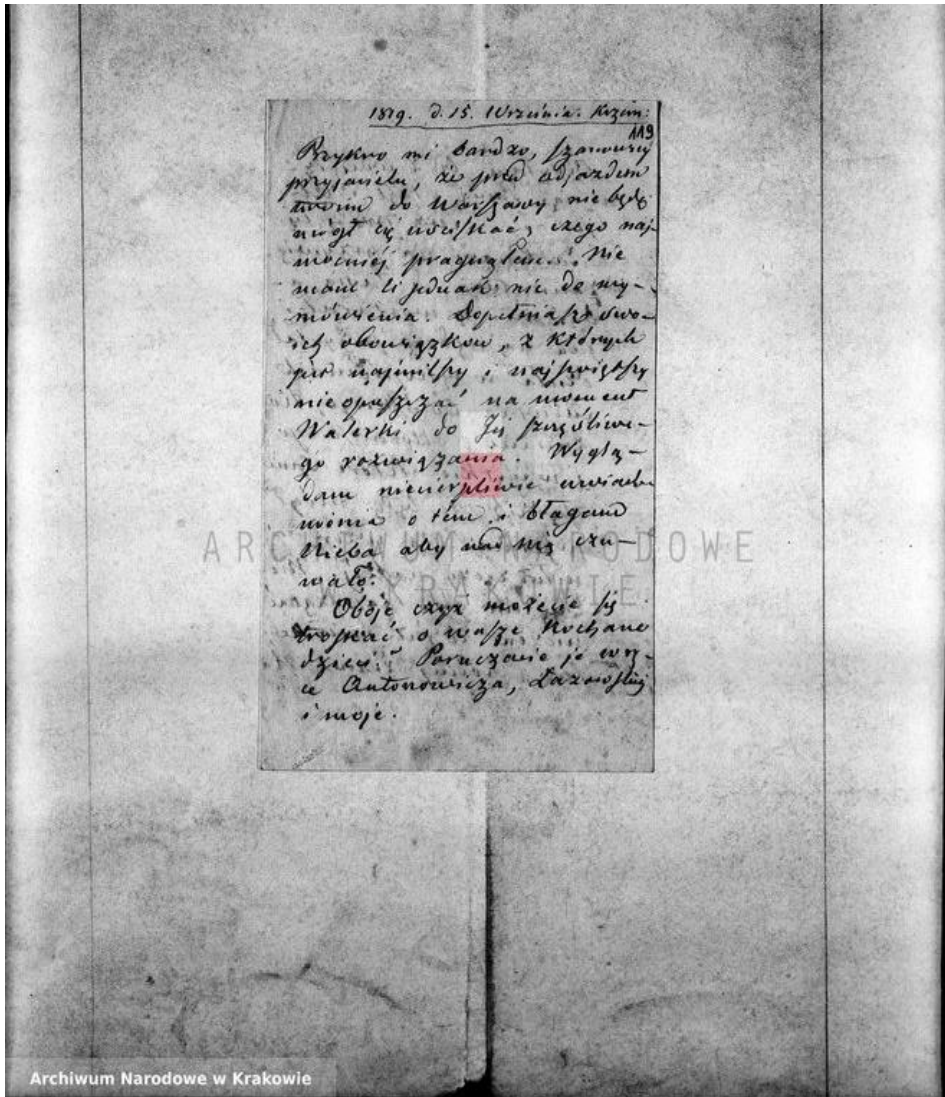 1819. d. 15. Września. Krzem:
119
Przykro mi bardzo, szanowny
przyjacielu, że przed odjazdem
twoim do Warszawy nie będę
mógł cię uściskać, czego naj-
mocniej pragnąłem. Nie
mam ci jednak nic do wy-
mówienia. Dopełniasz swo-
ich obowiązków, z których
jest najmilszy i najświętszy
nieopuszczać na moment
Walerki do Jej szczęśliwe-
go rozwiązania. Wyglą-
dam niecierpliwie uwiado-
mienia o tem i błagam
Nieba aby nad nią czu-
wało.
Oboje czyż możecie się
troskać o wasze kochane
dzieci? Poruczacie je
Antonowicza,
i moje.
ARCHIWUM NARODOWE
W KRAKOWIE
Archiwum Narodowe w Krakowie